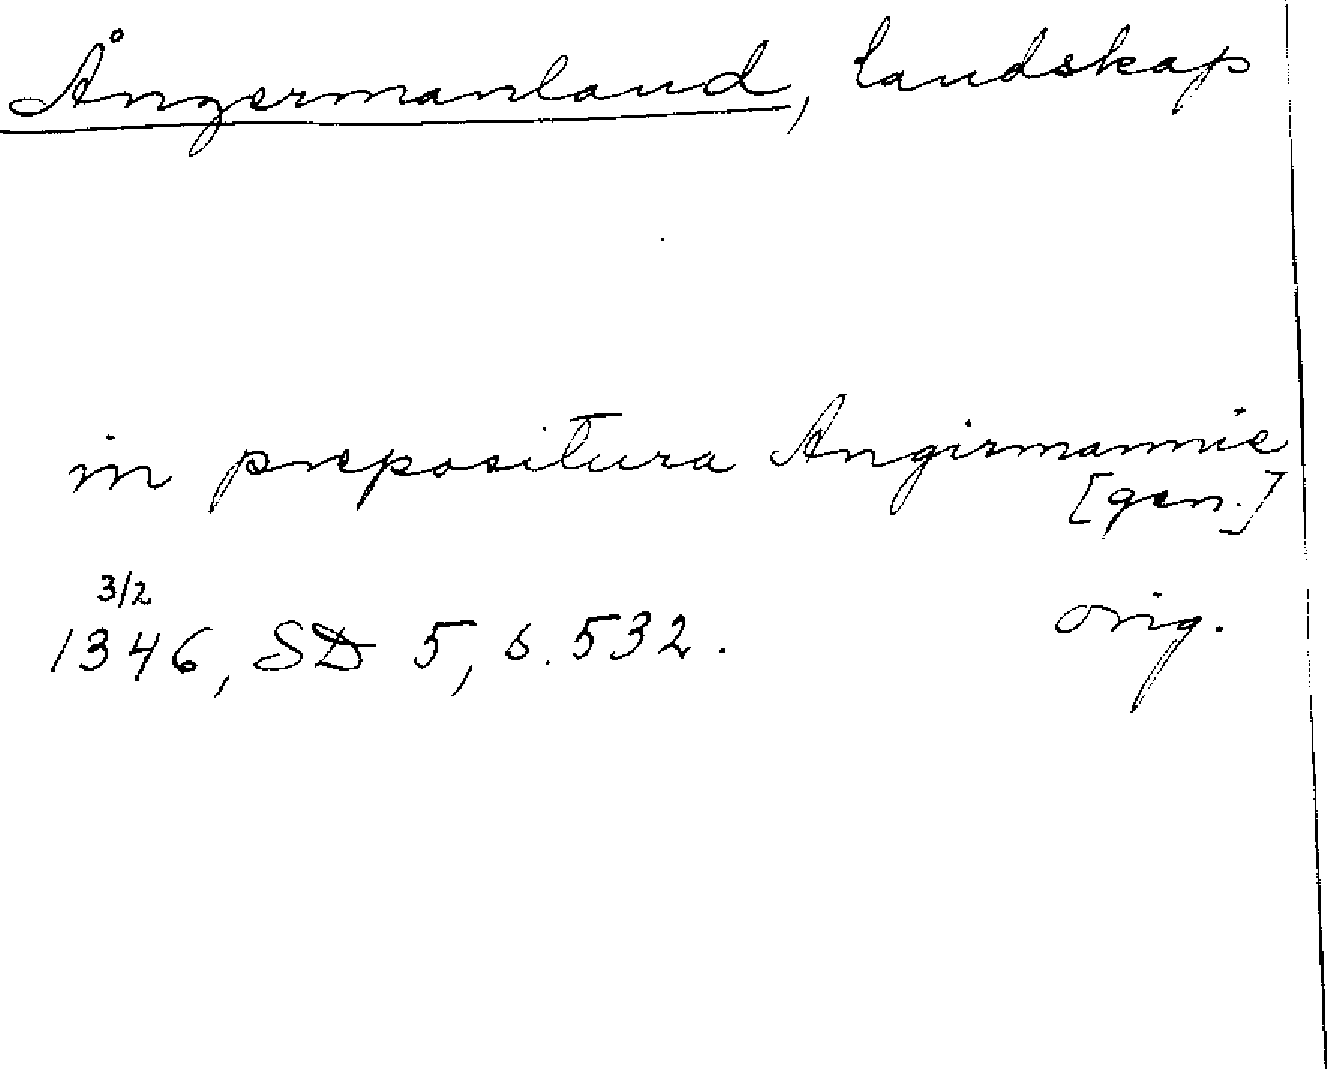 Ångermanland, landskap
in prepositura Angirmannie
[gen.]
3/2
1346, SD 5, s. 532. orig.